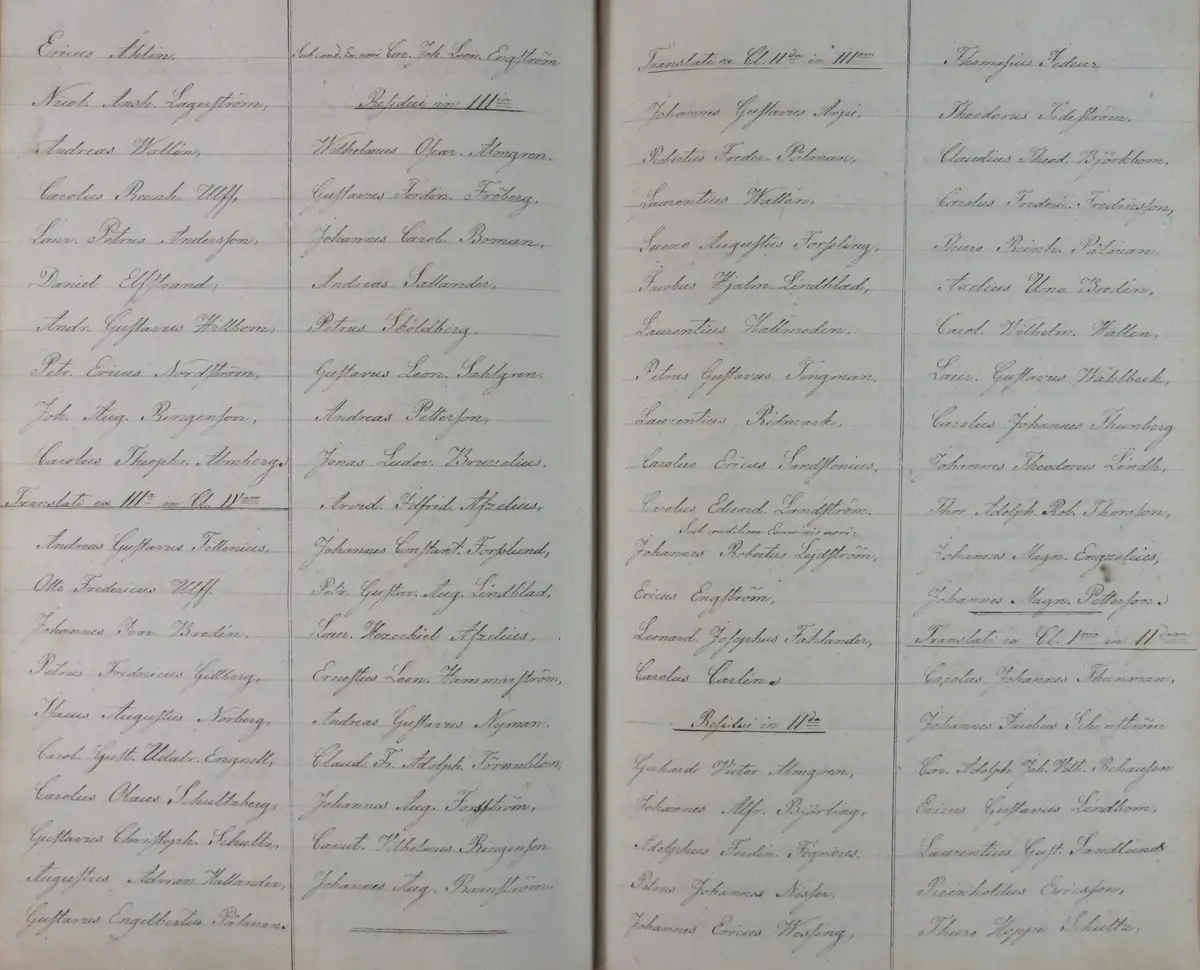 Ericus Ahlin.
Nicol. Ansh. Lagerström,
Andreas Wallin,
Carolus Reinh. Ulff,
Laur. Petrus Andersson,
Daniel Elfstrand,
Andr. Gustavus Hillbom,
Petr. Ericus Nordström,
Joh. Aug. Ringenson,
Carolus Theoph. Almberg.
Translati ex IIIa in Cl. IVam
Andreas Gustavus Tillenius,
Otto Fredericus Ulff.
Johannes Ivar. Brodin.
Petrus Fredericus Gillberg,
Isacus Augustus Norberg,
Carol. Gust. Udalr. Engnell,
Carolus Olaus Schultzberg,
Gustavus Christoph. Schultz,
Augustus Adrian Hallander,
Gustavus Engelbertus Pålman.
Sub cond. Ex. novi Car. Joh. Leon. Engström
Residui in IIIia
Wilhelmus Oscar. Almgren.
Gustavus Ferdin. Fröberg.
Johannes Carol. Boman,
Andreas Sallander,
Petrus Sköldberg.
Gustavus Leon. Sahlgren.
Andreas Petterson,
Jonas Ludov. Bruzelius.
Arvid. Afzelius,
Johannes Constant. Forsslund,
Petr. Gustav. Aug. Lindblad,
Laur. Afzelius.
Ernestus Leon. Hamminström,
Andreas Gustavus Nyman.
Claud. Fr. Adolph. Törnnblom,
Johannes Aug. Forsström,
Canut. Vilhelmus Ringenson
Johannes Aug. Ramström
Translati ex Cl. IIda in IIIam
Johannes Gustavus Arpi.
Robertus Freder. Pålman,
Laurentius Wallin,
Sueno Augustus Forssling,
Jacobus Hjalm. Lindblad,
Laurentius Hallmedin.
Petrus Gustavus Tingman,
Laurentius Ridmark.
Carolus Ericus Sandstenius,
Carolus Eduard. Lundström.
Sub conditione Examinis novi:
Johannes Robertus Lejdström,
Ericus Engström,
Leonard. Josephus Fahlander,
Carolus Carlin.
Residui in IIda
Gerhard Victor Almgren,
Johannes Alfr. Björling,
Adolphus Ferdin. Fégræus.
Petrus Johannes Nisser,
Johannes Ericus Wessing,
Thomasius Fedeur
Theodorus Tideström,
Claudius Theod. Björkbom,
Carolus Frederic. Fredricsson,
Thure Reinh. Pålman,
Axelius Uno Brodin,
Carol. Wilhelm. Wallen,
Laur. Gustavus Wahlbeck,
Carolus Johannes Thunberg
Johannes Theodorus Lindh,
Thor Adolph. Rob. Thorsson,
Johannes Magn. Engzelius,
Johannes Magn. Petterson.
Translati ex Cl. Ima in IIdam
Carolus Johannes Thunman.
Johannes Jacobus Schenström
Car. Adolph. Joh. Vilh. Rehausen
Ericus Gustavus Lindbom,
Laurentius Gust. Sandlund
Reinholdus Ericsson,
Thure Hoppe Schultz,